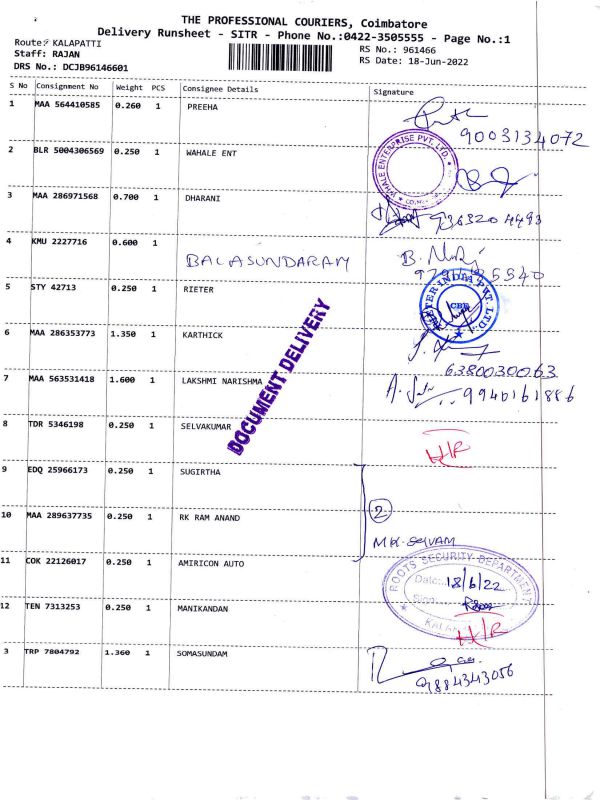 THE PROFESSIONAL COURIERS, Coimbatore
Delivery Runsheet - SITR - Phone No.:0422-3505555 - Page No.:1
Route: KALAPATTI
Staff: RAJAN
DRS No.: DCJB96146601
RS No.: 961466
RS Date: 18-Jun-2022
S No Consignment No Weight PCS Consignee Details Signature
1 MAA 564410585 0.260 1 PREEHA
9003134072
2 BLR 5004306569 0.250 1 WAHALE ENT
WHALE ENTERPRISE PVT. LTD.
3 MAA 286971568 0.700 1 DHARANI
4 KMU 2227716 0.600 1 BALASUNDARAM
5 STY 42713 0.250 1 RIETER
RIETER INDIA PVT. LTD.
CBE
6 MAA 286353773 1.350 1 KARTHICK
6380030063
7 MAA 563531418 1.600 1 LAKSHMI NARISHMA
9940161886
DOCUMENT DELIVERY
8 TDR 5346198 0.250 1 SELVAKUMAR
H/R
9 EDQ 25966173 0.250 1 SUGIRTHA
2
10 MAA 289637735 0.250 1 RK RAM ANAND
MK. SELVAM
11 COK 22126017 0.250 1 AMIRICON AUTO
ROOTS SECURITY DEPARTMENT
Date: 18/6/22
Sign:
12 TEN 7313253 0.250 1 MANIKANDAN
H/R
3 TRP 7804792 1.360 1 SOMASUNDAM
9884343056